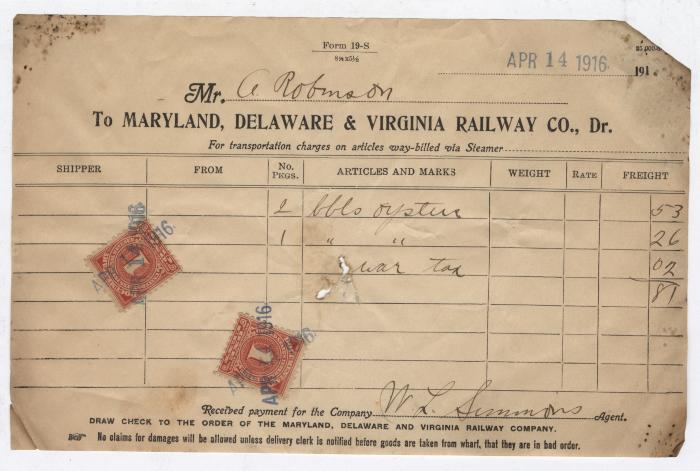 Form 19-S
8½x5½
APR 14 1916
191
Mr. A Robinson
To MARYLAND, DELAWARE & VIRGINIA RAILWAY CO., Dr.
For transportation charges on articles way-billed via Steamer
SHIPPER FROM No. PKGS. ARTICLES AND MARKS WEIGHT RATE FREIGHT
2 bbls oysters 53
1 " " 26
war tax 02
81
APR 14 1916
APR 14 1916
1
APR 14 1916
1
Received payment for the Company W. L. Simmons Agent.
DRAW CHECK TO THE ORDER OF THE MARYLAND, DELAWARE AND VIRGINIA RAILWAY COMPANY.
No claims for damages will be allowed unless delivery clerk is notified before goods are taken from wharf, that they are in bad order.